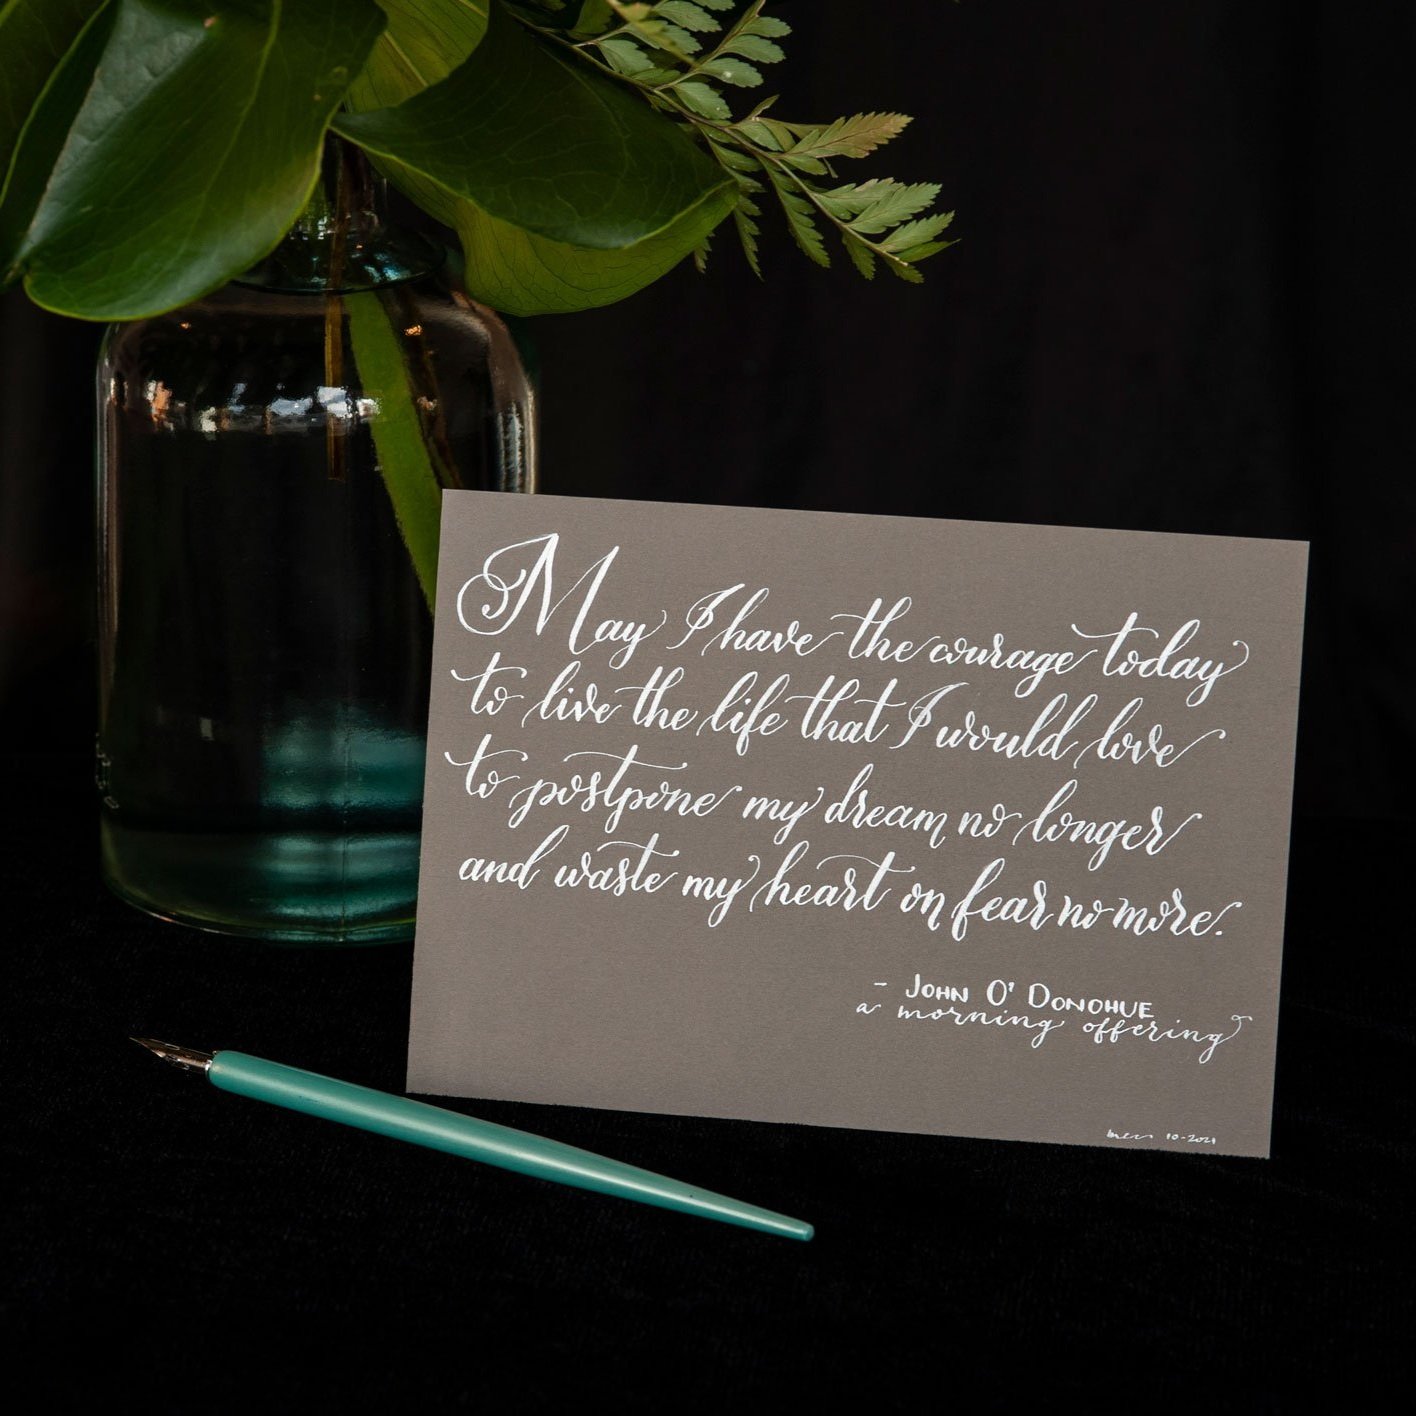 May I have the courage today
to live the life that I would love
to postpone my dream no longer
and waste my heart on fear no more.
- JOHN O' DONOHUE
a morning offering
10-2021